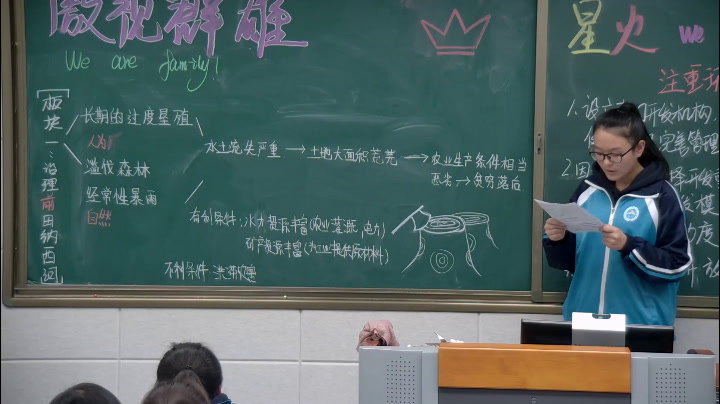 傲视群雄
We are family!
[板块一:治理前田纳西河]
长期的过度垦殖
人为
滥伐森林
经常性暴雨
自然
水土流失严重 → 土地大面积荒芜 → 农业生产条件相当
恶劣 → 贫穷落后
有利条件:水力资源丰富(农业灌溉,电力)
矿产资源丰富(为工业提供原材料)
不利条件:洪涝灾害
星火 we
注重环
1.设立 开发机构
完善管理
2.因
择开
模
力度